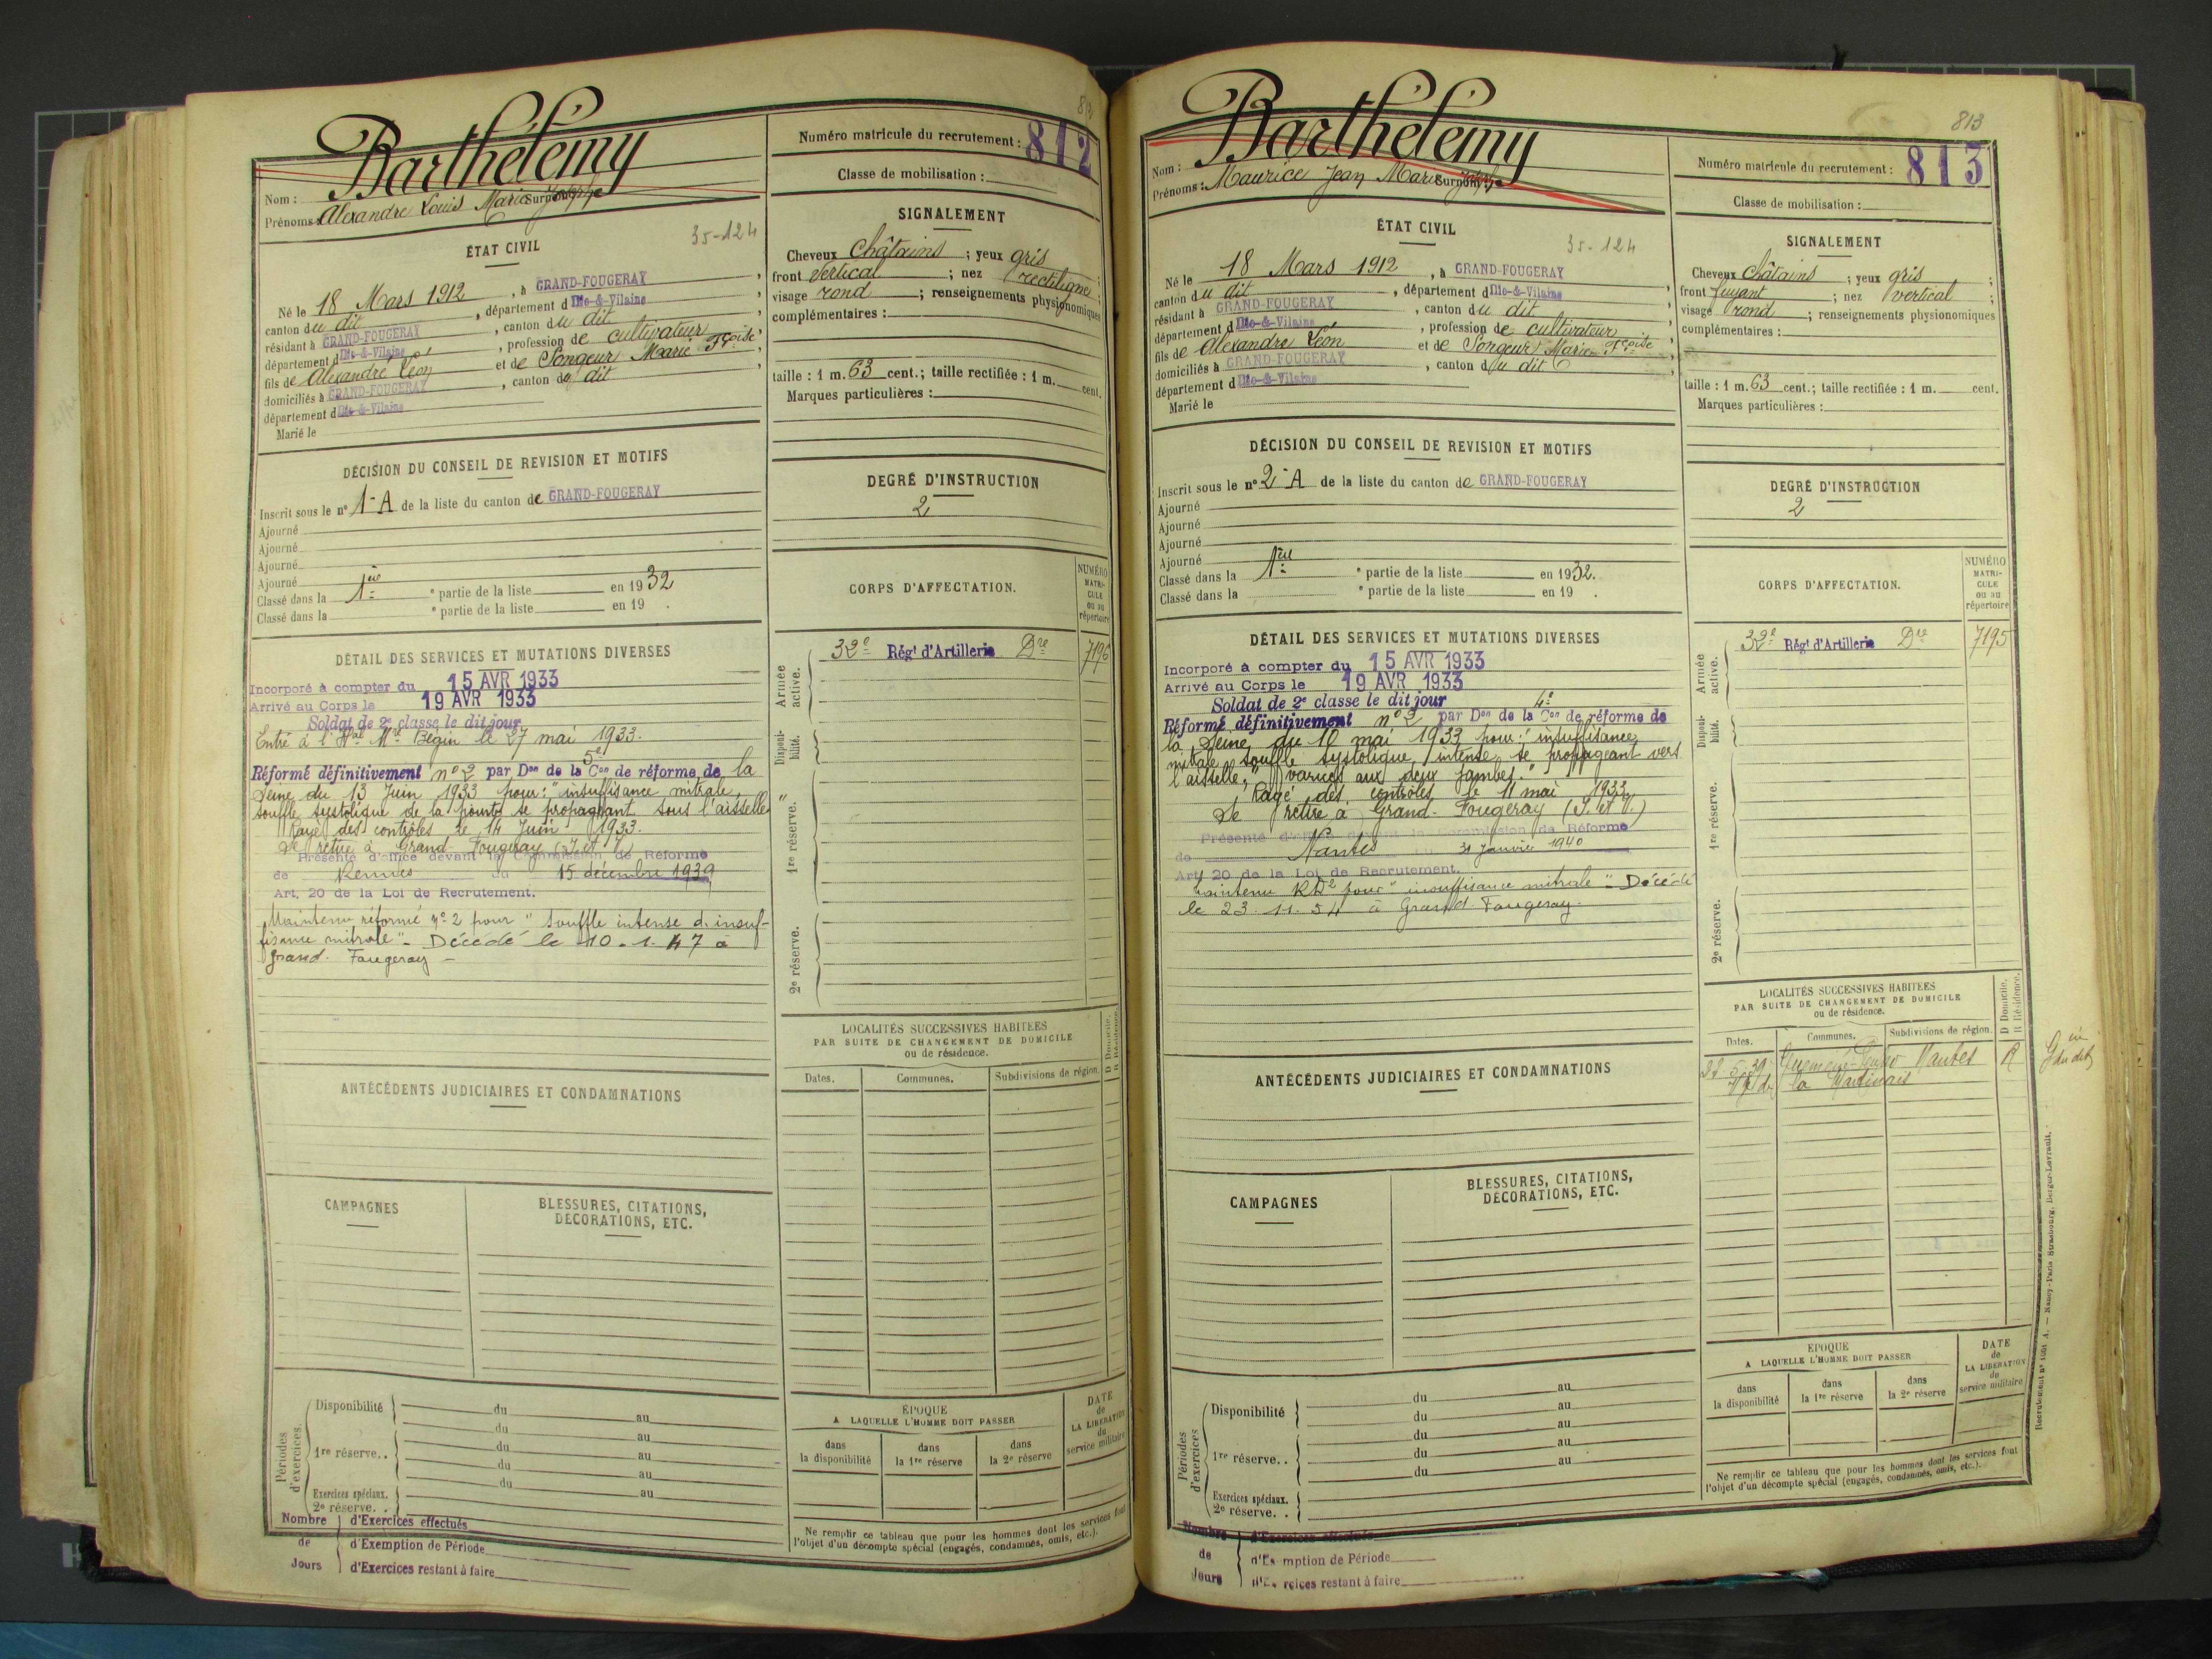 812
Barthélemy
Numéro matricule du recrutement : 812
Nom :
Prénoms : Alexandre Louis Marie Joseph Surnom :
Classe de mobilisation :
35-124
ÉTAT CIVIL
Né le 18 Mars 1912, à GRAND-FOUGERAY,
canton du dit, département d Ille-&-Vilaine,
résidant à GRAND-FOUGERAY, canton du dit
département d Ille-&-Vilaine, profession de cultivateur
fils de Alexandre Léon et de Songeur Marie Fçoise,
domiciliés à GRAND-FOUGERAY, canton du dit,
département d Ille-&-Vilaine
Marié le
SIGNALEMENT
Cheveux châtains ; yeux gris
front vertical ; nez rectiligne ;
visage rond ; renseignements physionomiques
complémentaires :
taille : 1 m. 63 cent. ; taille rectifiée : 1 m. cent.
Marques particulières :
DÉCISION DU CONSEIL DE REVISION ET MOTIFS
Inscrit sous le n° 1-A de la liste du canton de GRAND-FOUGERAY
Ajourné
Ajourné
Ajourné
Ajourné
Classé dans la 1ère e partie de la liste en 1932
Classé dans la e partie de la liste en 19 .
DEGRÉ D'INSTRUCTION
2
DÉTAIL DES SERVICES ET MUTATIONS DIVERSES
Incorporé à compter du 15 AVR 1933
Arrivé au Corps le 19 AVR 1933
Soldat de 2e classe le dit jour
Entré à l'Hal Mre Bégin le 27 mai 1933.
5e
Réformé définitivement n° 2 par Don de la Con de réforme de la
Seine du 13 Juin 1933 pour : "insuffisance mitrale,
souffle systolique de la pointe se propageant sous l'aisselle"
Rayé des contrôles le 14 Juin 1933.
Se retire à Grand-Fougeray (I. et V.)
Présenté d'office devant la Commission de Réforme
de Rennes du 15 décembre 1939
Art. 20 de la Loi de Recrutement.
Maintenu réformé n° 2 pour "Souffle intense d. insuf-
fisance mitrale" - Décédé le 10.1.47 à
Grand. Fougeray -
CORPS D'AFFECTATION.
NUMÉRO
MATRI-
CULE
ou au
répertoire
Armée active.
32e Régt d'Artillerie Dre 7196
Disponi-
bilité.
1re réserve.
2e réserve.
LOCALITÉS SUCCESSIVES HABITÉES
PAR SUITE DE CHANGEMENT DE DOMICILE
ou de résidence.
D Domicile.
R Résidence.
Dates. Communes. Subdivisions de région.
ANTÉCÉDENTS JUDICIAIRES ET CONDAMNATIONS
CAMPAGNES
BLESSURES, CITATIONS,
DÉCORATIONS, ETC.
Périodes
d'exercices.
Disponibilité du au
du au
1re réserve.. du au
du au
du au
Exercices spéciaux.
2e réserve. .
Nombre de Jours
d'Exercices effectués
d'Exemption de Période
d'Exercices restant à faire
ÉPOQUE
A LAQUELLE L'HOMME DOIT PASSER
dans la disponibilité
dans la 1re réserve
dans la 2e réserve
DATE
de
LA LIBÉRATION
du
service militaire
Ne remplir ce tableau que pour les hommes dont les services font
l'objet d'un décompte spécial (engagés, condamnés, omis, etc.).
813
Barthélemy
Numéro matricule du recrutement : 813
Nom :
Prénoms : Maurice Jean Marie Joseph Surnom :
Classe de mobilisation :
35-124
ÉTAT CIVIL
Né le 18 Mars 1912, à GRAND-FOUGERAY
canton du dit, département d Ille-&-Vilaine,
résidant à GRAND-FOUGERAY, canton du dit
département d Ille-&-Vilaine, profession de cultivateur
fils de Alexandre Léon et de Songeur Marie Fçoise
domiciliés à GRAND-FOUGERAY, canton du dit,
département d Ille-&-Vilaine
Marié le
SIGNALEMENT
Cheveux châtains ; yeux gris ;
front fuyant ; nez vertical ;
visage rond ; renseignements physionomiques
complémentaires :
taille : 1 m. 63 cent. ; taille rectifiée : 1 m. cent.
Marques particulières :
DÉCISION DU CONSEIL DE REVISION ET MOTIFS
Inscrit sous le n° 2-A de la liste du canton de GRAND-FOUGERAY
Ajourné
Ajourné
Ajourné
Ajourné
Classé dans la 1ère e partie de la liste en 1932.
Classé dans la e partie de la liste en 19 .
DEGRÉ D'INSTRUCTION
2
DÉTAIL DES SERVICES ET MUTATIONS DIVERSES
Incorporé à compter du 15 AVR 1933
Arrivé au Corps le 19 AVR 1933
Soldat de 2e classe le dit jour
4e
Réformé définitivement n° 2 par Don de la Con de réforme de
la Seine du 10 mai 1933 pour : "insuffisance
mitrale souffle systolique intense se propageant vers
l'aisselle, varices aux deux jambes."
Rayé des contrôles le 11 mai 1933.
Se retire à Grand-Fougeray (I. et V.)
Présenté d'office devant la Commission de Réforme
de Nantes du 31 Janvier 1940
Art. 20 de la Loi de Recrutement.
maintenu RD2 pour "insuffisance mitrale" - Décédé
le 23.11.54 à Grand. Fougeray.
CORPS D'AFFECTATION.
NUMÉRO
MATRI-
CULE
ou au
répertoire
Armée active.
32e Régt d'Artillerie Dre 7195
Disponi-
bilité.
1re réserve.
2e réserve.
LOCALITÉS SUCCESSIVES HABITÉES
PAR SUITE DE CHANGEMENT DE DOMICILE
ou de résidence.
D Domicile.
R Résidence.
Dates. Communes. Subdivisions de région.
Nantes R
la
ANTÉCÉDENTS JUDICIAIRES ET CONDAMNATIONS
CAMPAGNES
BLESSURES, CITATIONS,
DÉCORATIONS, ETC.
Périodes
d'exercices
Disponibilité du au
du au
1re réserve.. du au
du au
du au
Exercices spéciaux.
2e réserve. .
Nombre de Jours
d'Exercices effectués
d'Exemption de Période
d'Exercices restant à faire
ÉPOQUE
A LAQUELLE L'HOMME DOIT PASSER
dans la disponibilité
dans la 1re réserve
dans la 2e réserve
DATE
de
LA LIBÉRATION
du
service militaire
Ne remplir ce tableau que pour les hommes dont les services font
l'objet d'un décompte spécial (engagés, condamnés, omis, etc.).
A. — Nancy-Paris Strasbourg. Berger-Levrault.